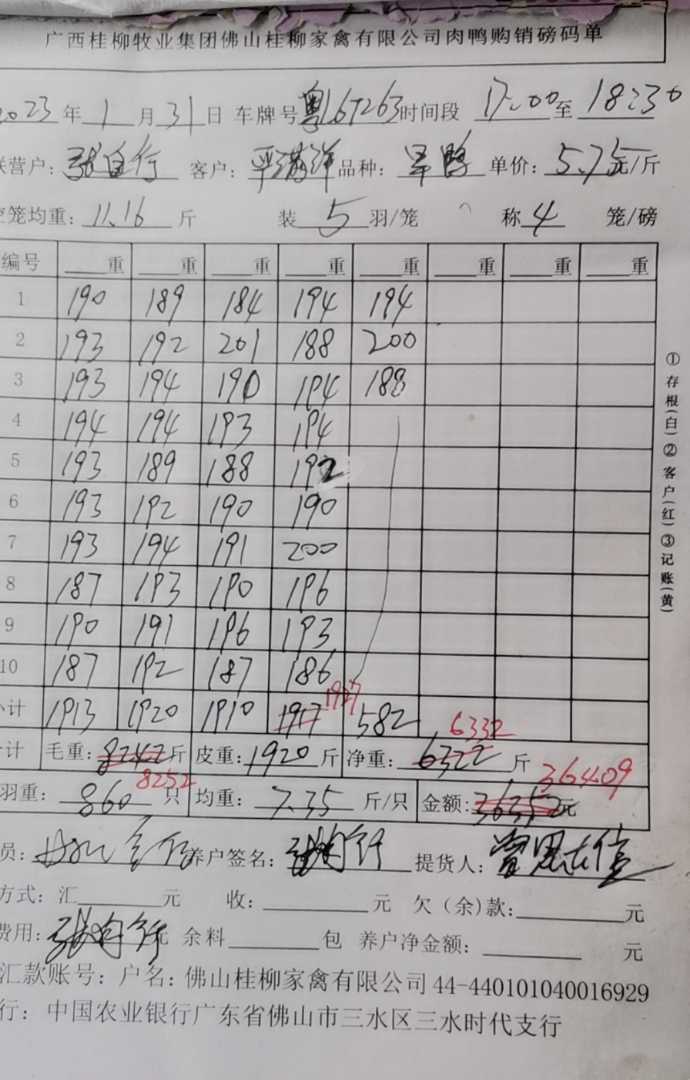 广西桂柳牧业集团佛山桂柳家禽有限公司肉鸭购销磅码单
2023年1月31日 车牌号粤 时间段 17:00至18:30
联营户:张自行 客户: 品种: 单价:5.75元/斤
空笼均重:11.16斤 装5羽/笼 称4笼/磅
编号 重 重 重 重 重 重 重 重
1 190 189 184 194 194
2 193 192 201 188 200
3 193 194 190 194 188
4 194 194 193 194
5 193 189 188 192
6 193 192 190 190
7 193 194 191 200
8 187 193 190 196
9 190 191 196 193
10 187 192 187 186
1927
小计 1913 1920 1910 1917 582
6332
合计 毛重:8242斤 皮重:1920斤 净重:6322斤
8252 36409
羽重:860只 均重:7.35斤/只 金额:36352元
员: 养户签名: 提货人:
方式:汇 元 收: 元 欠(余)款: 元
费用: 元 余料 包 养户净金额: 元
汇款账号:户名:佛山桂柳家禽有限公司 44-440101040016929
行:中国农业银行广东省佛山市三水区三水时代支行
①存根(白)②客户(红)③记账(黄)